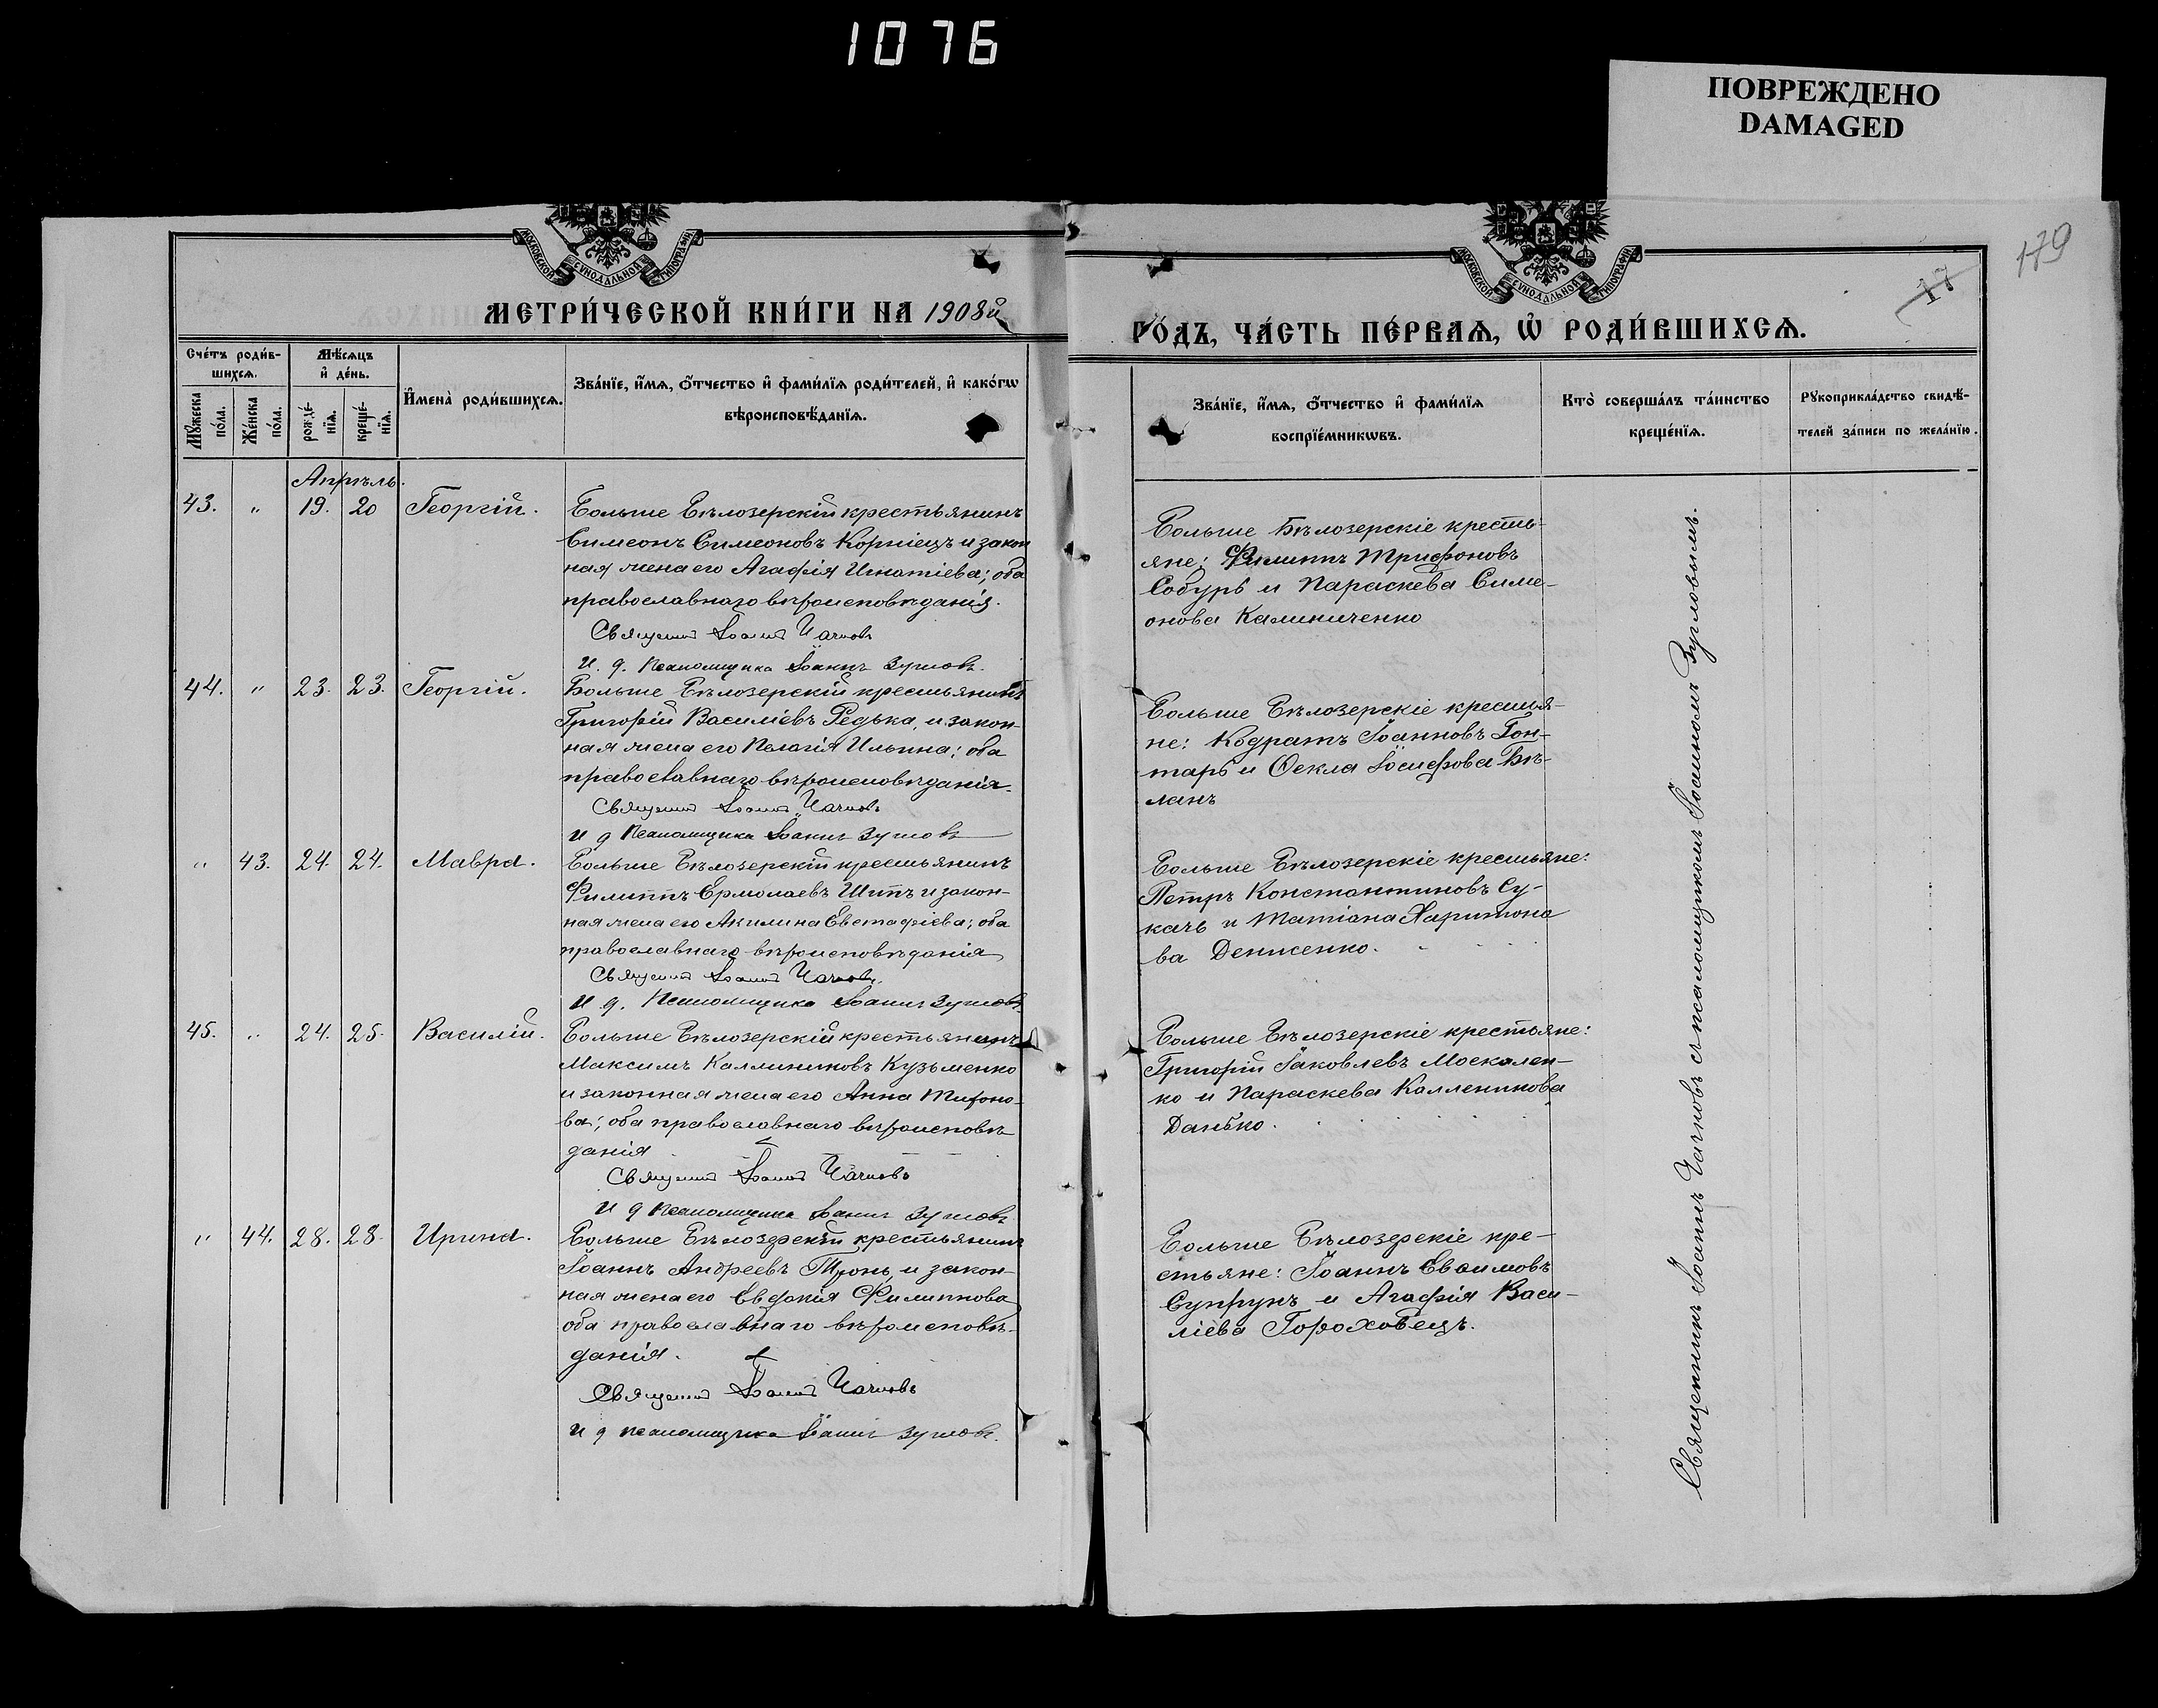 1076
ПОВРЕЖДЕНО
DAMAGED
179
17
МОСКОВСКОЙ СѴНОДАЛЬНОЙ ТИПОГРАФІИ
МОСКОВСКОЙ СѴНОДАЛЬНОЙ ТИПОГРАФІИ
МЕТРИ́ЧЕСКОЙ КНИ́ГИ НА 1908й
ГО́ДЪ, ЧА́СТЬ ПЕ́РВАѦ, Ѡ҆ РОДИ́ВШИХСѦ.
Сче́тъ роди́в-
шихсѧ.
Мꙋ́жеска по́ла.
Же́нска по́ла.
Мѣ́сѧцъ
и҆ де́нь.
рожде́-
нїѧ.
креще́-
нїѧ.
И҆мена̀ роди́вшихсѧ.
Зва́нїе, и҆́мѧ, ѻ҆́тчество и҆ фами́лїѧ роди́телей, и҆ како́гѡ
вѣроисповѣ́данїѧ.
Зва́нїе, и҆́мѧ, ѻ҆́тчество и҆ фами́лїѧ
воспрїе́мникѡвъ.
Кто̀ соверша́лъ та́инство
креще́нїѧ.
Рꙋкоприкла́дство свидѣ́-
телей за́писи по жела́нїю.
Апрѣль.
43. " 19. 20 Георгій.
Больше Бѣлозерскій крестьянинъ
Симеонъ Симеоновъ Корніецъ и закон
ная жена его Агафія Игнатіева; оба
православнаго вѣроисповѣданія.
Священ Іоаннъ Чачковъ
И. д. Псаломщика Іоаннъ Зугловъ.
Больше Бѣлозерскіе кресть-
яне: Филиппъ Трифоновъ
Собурь и Параскева Симе-
онова Калиниченко
44. " 23. 23. Георгій.
Больше Бѣлозерскій крестьянинъ
Григорій Василіевъ Редька, и закон-
ная жена его Пелагія Ильина; оба
православнаго вѣроисповѣданія.
Священ Іоаннъ Чачковъ
И д Псаломщика Іоаннъ Зугловъ
Больше Бѣлозерскіе крестья-
не: Кодратъ Іоанновъ Гон-
тарь и Ѳекла Іосифова Бѣ-
ланъ
" 43. 24. 24. Мавра.
Больше Бѣлозерскій крестьянинъ
Филиппъ Ермолаевъ Шить и закон-
ная жена его Акилина Евстафіева; оба
православнаго вѣроисповѣданія
Священ Іоаннъ Чачковъ.
И д. Псаломщика Іоаннъ Зугловъ
Больше Бѣлозерскіе крестьяне:
Петръ Константиновъ Су-
качь и Татіана Харитоно
ва Денисенко.
45. " 24. 25. Василій.
Больше Бѣлозерскій крестьянинъ
Максимъ Каллиниковъ Кузьменко
и законная жена его Анна Тифоно-
ва; оба православнаго вѣроисповѣ
данія
Священ Іоаннъ Чачковъ
И д Псаломщика Іоаннъ Зугловъ
Больше Бѣлозерскіе крестьяне:
Григорій Іаковлевъ Москален-
ко и Параскева Калленикова
Данько.
" 44. 28. 28. Ирина.
Больше Бѣлозерскій крестьянинъ
Іоаннъ Андреевъ Тронь, и закон-
ная жена его Евдокія Филиппова
оба православнаго вѣроисповѣ-
данія.
Священ Іоаннъ Чачковъ
И д псаломщика Іоаннъ Зугловъ.
Больше Бѣлозерскіе кре-
стьяне: Іоаннъ Евѳимовъ
Супрунъ и Агафія Васи-
ліева Гороховецъ.
Священникъ Іоаннъ Чачковъ съ псаломщикомъ Іоанномъ Зугловымъ.